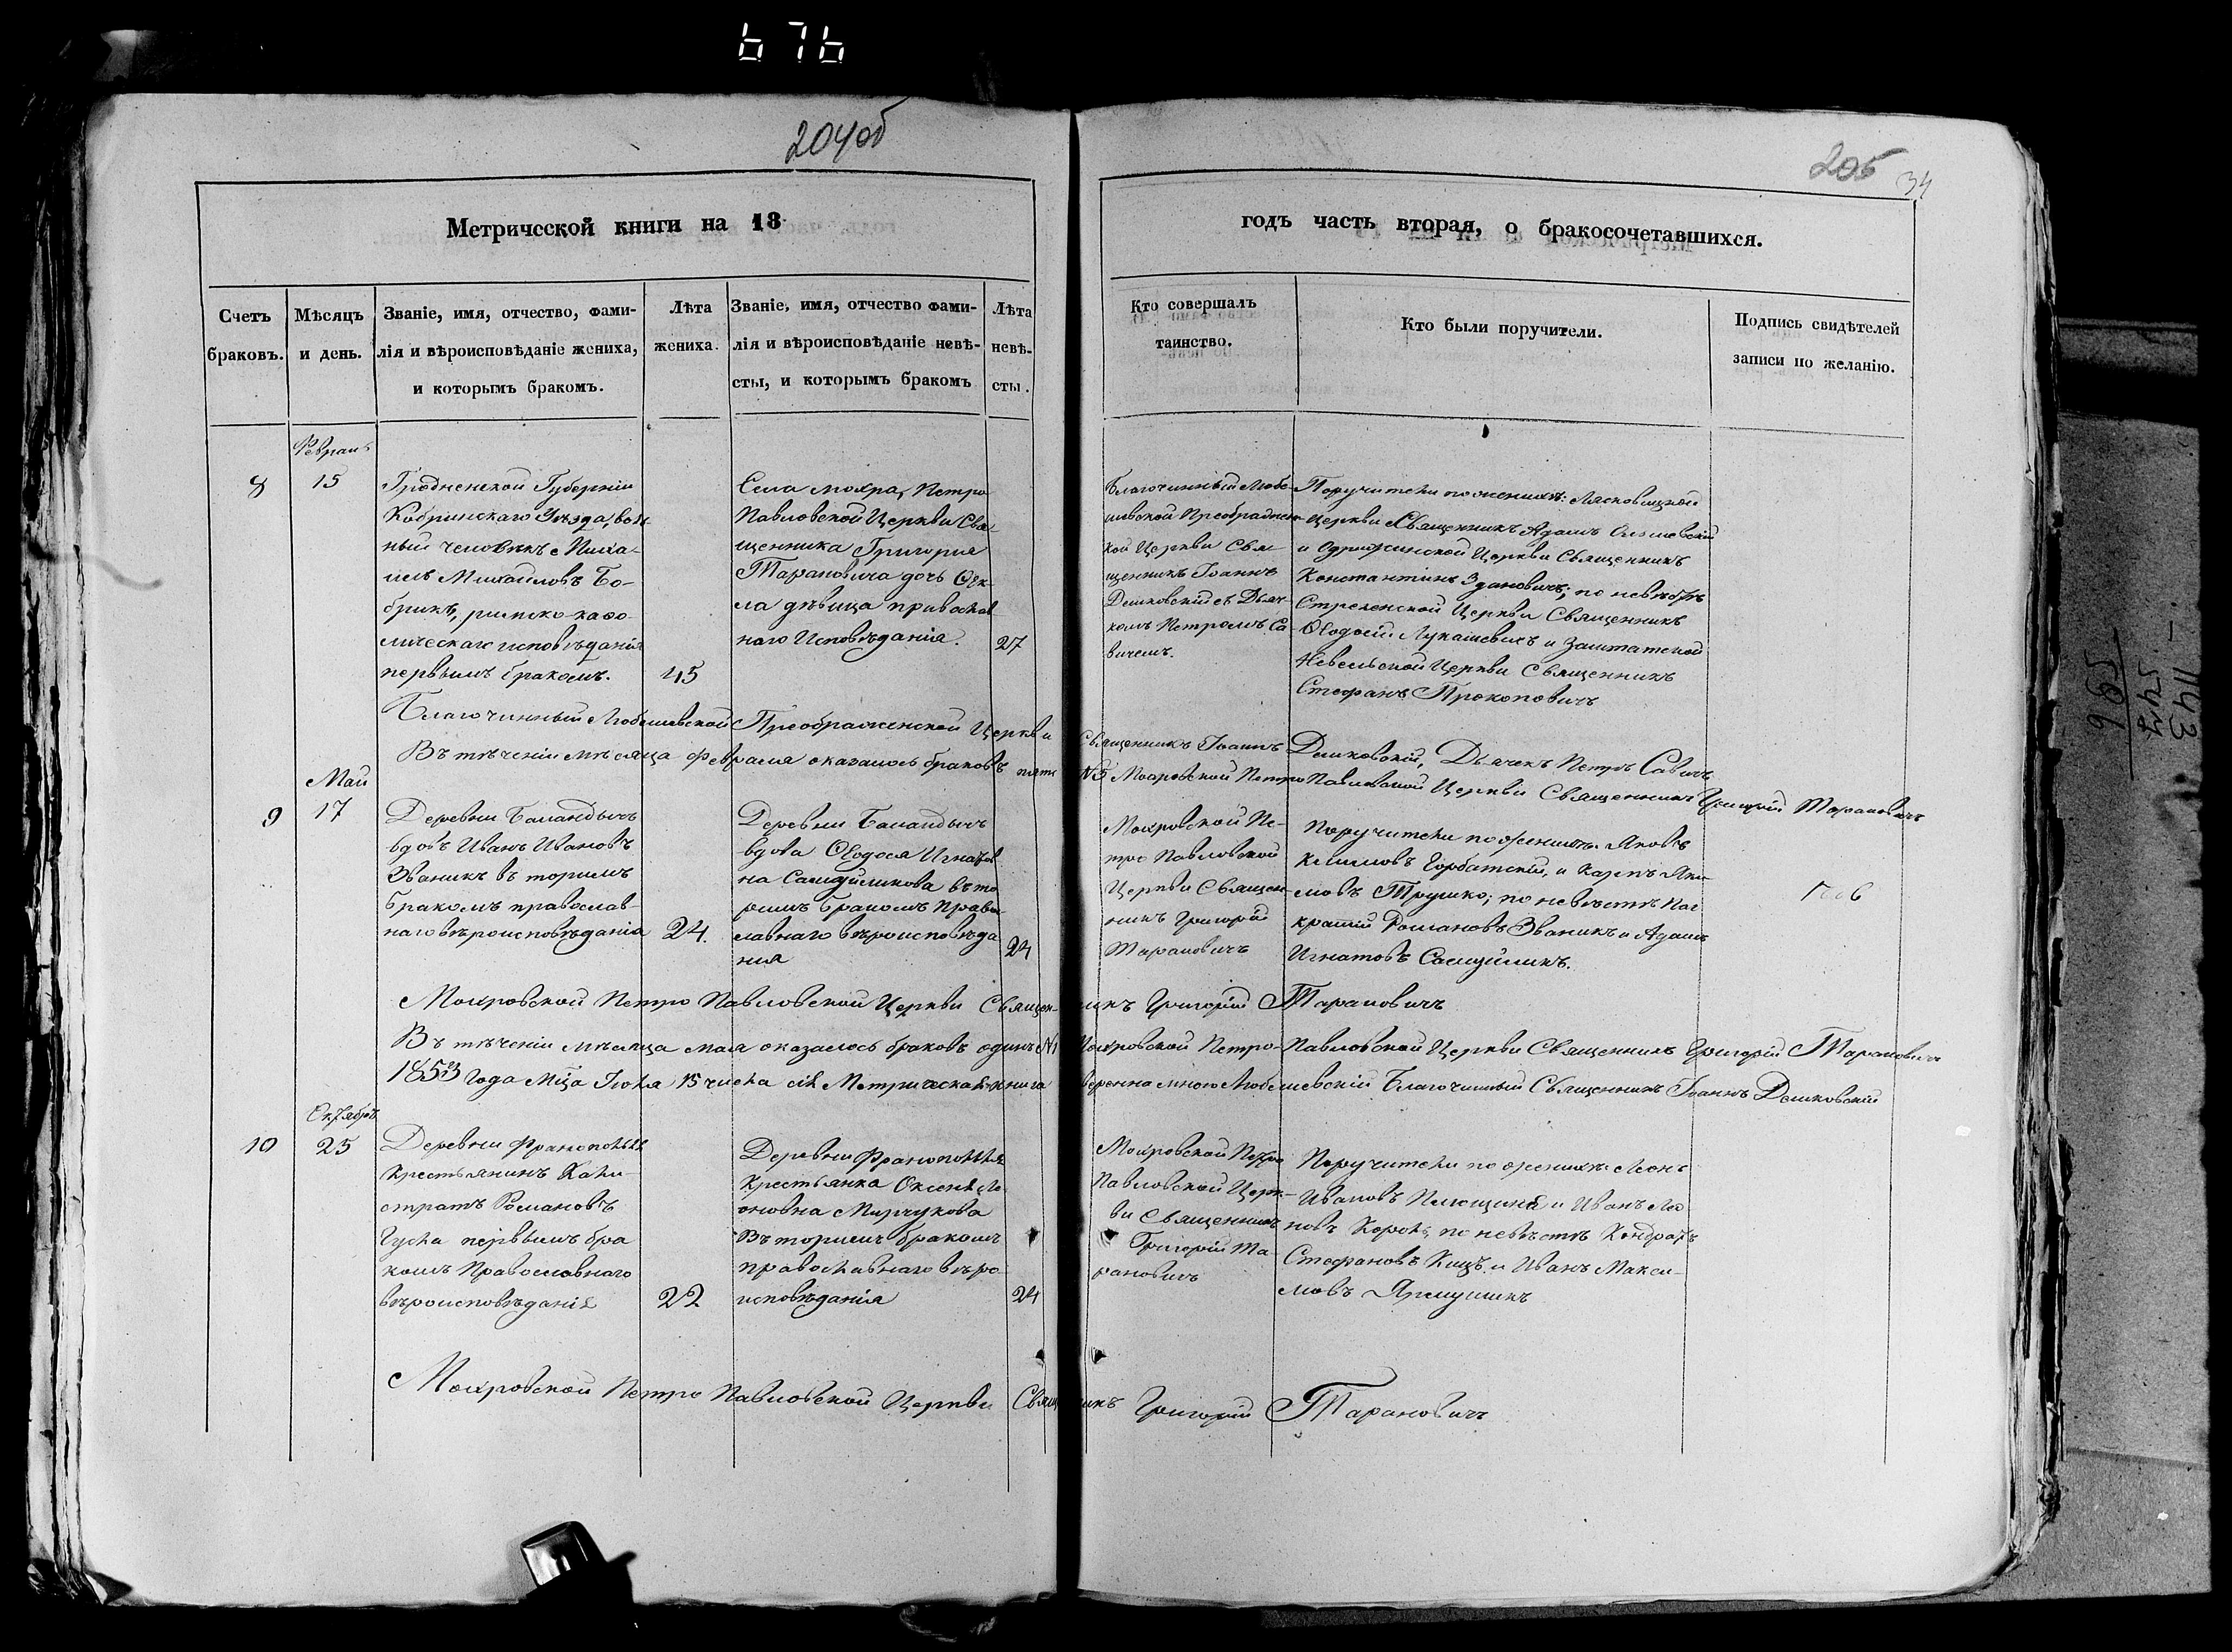 676
204об
205
34
Метрической книги на 18
годъ часть вторая, о бракосочетавшихся.
Счетъ
браковъ.
Мѣсяцъ
и день.
Званіе, имя, отчество, фами-
лія и вѣроисповѣданіе жениха,
и которымъ бракомъ.
Лѣта
жениха.
Званіе, имя, отчество фами-
лія и вѣроисповѣданіе невѣ-
сты, и которымъ бракомъ
Лѣта
невѣ-
сты.
Кто совершалъ
таинство.
Кто были поручители.
Подпись свидѣтелей
записи по желанію.
8
15
Гродненской Губерніи
Кобринскаго Уѣзда, воль
ный человѣкъ Миха-
илъ Михайловъ Бо-
брикъ, римско-каѳо-
лическаго исповѣданія
первымъ бракомъ.
45
Села Мохра, Петро
Павловской Церкви Свя-
щенника Григорія
Тарановича дочь Ѳек-
ла дѣвица православ
наго Исповѣданія.
27
Благочинный Любе-
шовской Преображен-
кой Церкви Свя-
щенникъ Іоаннъ
Демковскій съ Дьяч-
комъ Петромъ Са
вичемъ.
Поручители по женихѣ: Лясковицкой
Церкви Священникъ Адамъ
и Одрижинской Церкви Священникъ
Константинъ Здановичъ; по невѣстѣ
Стрельнской Церкви Священникъ
Ѳеодосій Лукашевичъ и Заштатской
Невельской Церкви Священникъ
Стефанъ Прокоповичъ
Благочинный Любешовской Преображенской Церкви Священникъ Іоаннъ Демковскій, Дьячекъ Петръ Савичъ
Въ тѣченіи мѣсяца Февраля оказалось браковъ пять №5 Мохровской Петро Павловской Церкви Священникъ Григорій Тарановичъ
Май
9
17
Деревни Баландычъ
вдовъ Иванъ Ивановъ
Званикъ вторимъ
бракомъ православ-
наго вѣроисповѣданія
24.
Деревни Баландычъ
вдова Ѳеодося Игнатов
на Самуйликова вто
римъ бракомъ Право
славнаго вѣроисповѣда
нія
24
Мохровской Пе-
тро Павловской
Церкви Священ-
никъ Григорій
Тарановичъ
Поручители по женихѣ: Яковъ
Климовъ Горбатскій, и Карпъ Яки-
мовъ Трушко; по невѣстѣ Пан
кратій Романовъ Званикъ и Адамъ
Игнатовъ Самуйликъ.
Мохровской Петро Павловской Церкви Священникъ Григорій Тарановичъ
Въ тѣченіи мѣсяца мая оказалось браковъ одинъ №1 Мохровской Петро-Павловской Церкви Священникъ Григорій Тарановичъ
1853 Года Мца Іюля 15 числа сія Метрическая книга верена мною Любешевскій Благочинный Священникъ Іоаннъ Демковскій
Октябръ
10
25
Деревни Франополья
Крестьянинъ Кали-
стратъ Романовъ
Гусла первымъ бра
комъ Православнаго
вѣроисповѣданія
22
Деревни Франополья
Крестьянка Оксеня Ле-
оновна Мирчукова
Вторимъ бракомъ
православнаго вѣро
исповѣданія
24
Мохровской Петро
Павловской Церк-
ви Священникъ
Григорій Та-
рановичъ
Поручители по женихѣ: Леонъ
Ивановъ и Иванъ Лео
новъ Король, по невѣстѣ Кондратъ
Стефановъ Кицъ и Иванъ Макси-
мовъ Яремушикъ
Мохровской Петро Павловской Церкви Священникъ Григорій Тарановичъ
1143
547
596